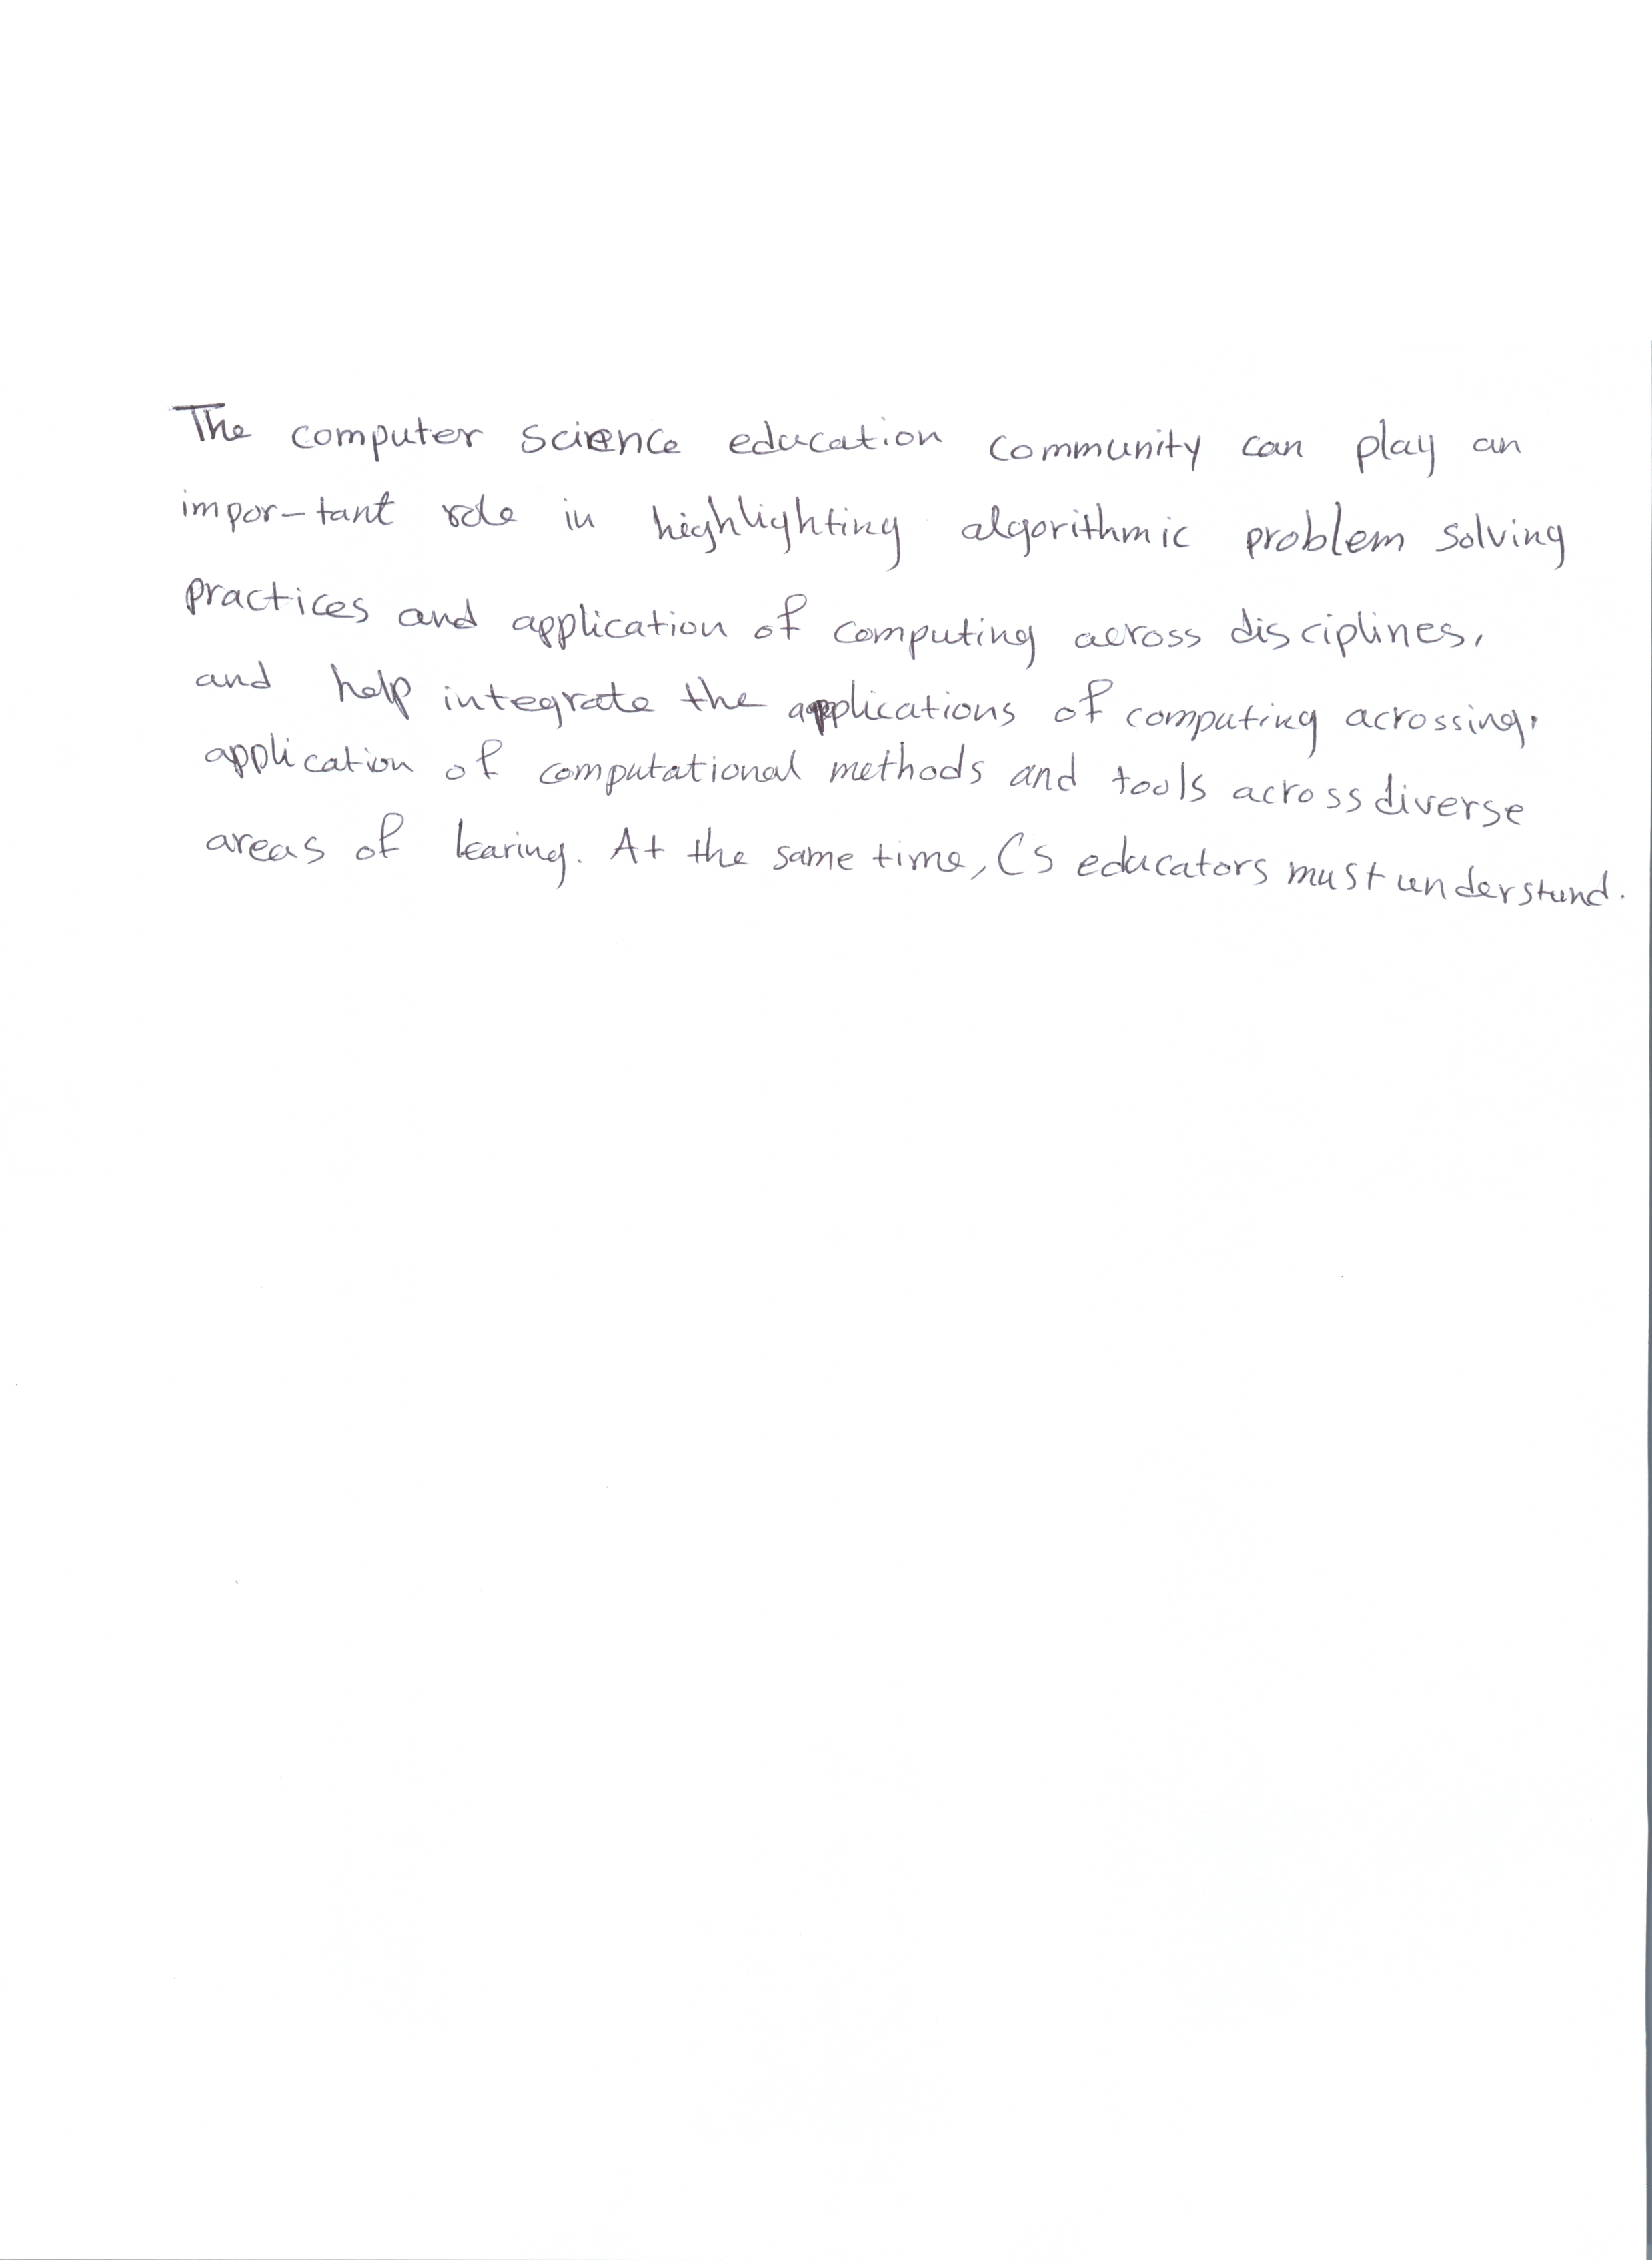 The computer science education community can play an
impor-tant role in highlighting algorithmic problem solving
practices and application of computing across disciplines,
and help integrate the applications of computing acrossing,
application of computational methods and tools across diverse
areas of learing. At the same time, CS educators must understand.